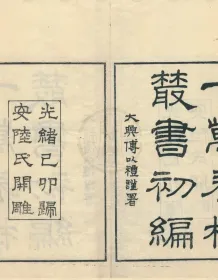 叢書初編
大興傅以禮謹署
光緒己卯歸
安陸氏開雕